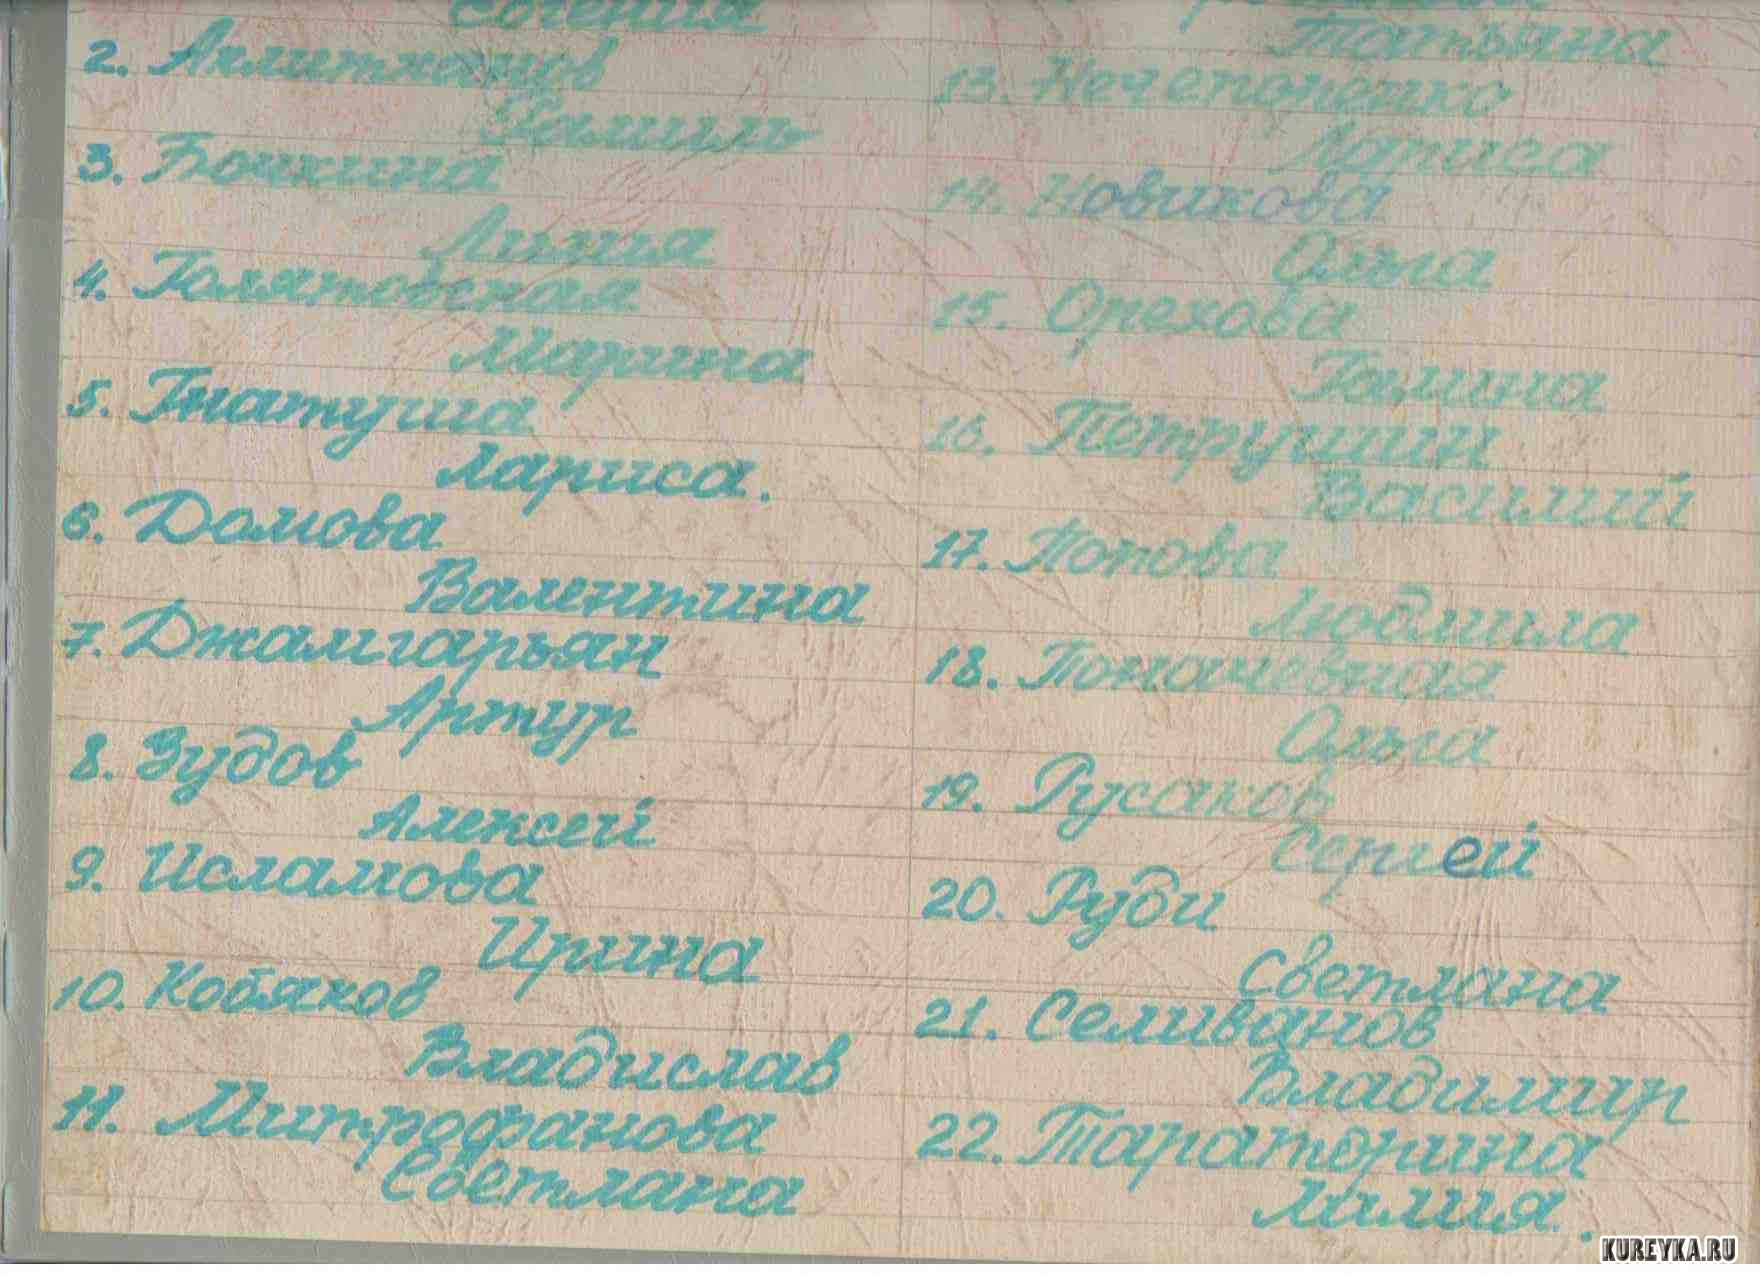 Евгения
2. Ахлитханов
Рамиль
3. Бочкина
Лилия
4. Голятовская
Марина
5. Гнатуша
Лариса.
6. Домова
Валентина
7. Джамгарьян
Артур
8. Зудов
Алексей
9. Исламова
Ирина
10. Кобяков
Владислав
11. Митрофанова
Светлана
Татьяна
13. Нечепоренко
Лариса
14. Новикова
Ольга
15. Орехова
Галина
16. Петрушин
Василий
17. Попова
Людмила
18. Поначевная
Ольга
19. Русаков
Сергей
20. Руди
Светлана
21. Селиванов
Владимир
22. Тараторина
Лилия.
KUREYKA.RU